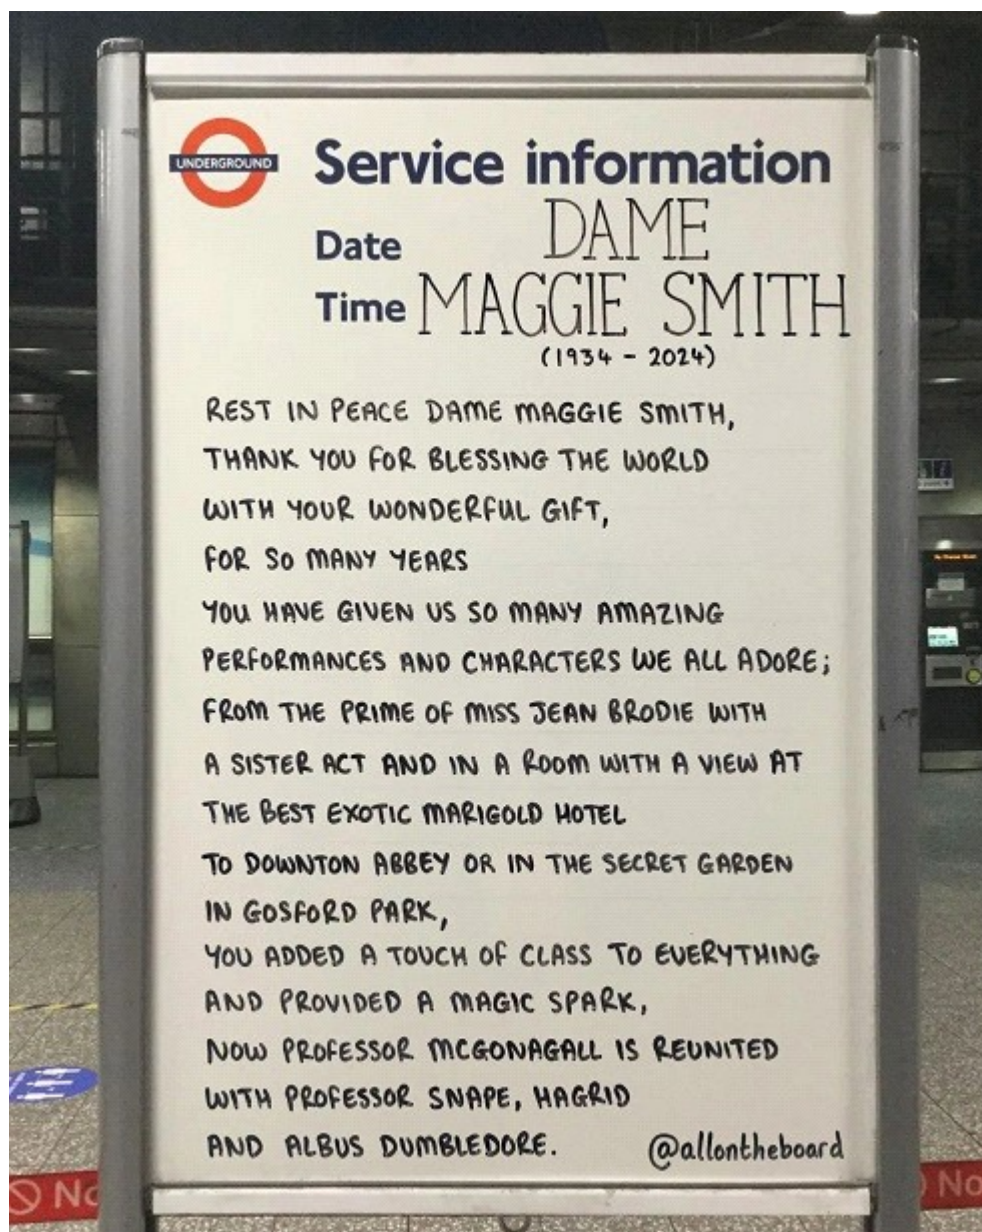 UNDERGROUND
Service information
Date DAME
Time MAGGIE SMITH
(1934 - 2024)
REST IN PEACE DAME MAGGIE SMITH,
THANK YOU FOR BLESSING THE WORLD
WITH YOUR WONDERFUL GIFT,
FOR SO MANY YEARS
YOU HAVE GIVEN US SO MANY AMAZING
PERFORMANCES AND CHARACTERS WE ALL ADORE;
FROM THE PRIME OF MISS JEAN BRODIE WITH
A SISTER ACT AND IN A ROOM WITH A VIEW AT
THE BEST EXOTIC MARIGOLD HOTEL
TO DOWNTON ABBEY OR IN THE SECRET GARDEN
IN GOSFORD PARK,
YOU ADDED A TOUCH OF CLASS TO EVERYTHING
AND PROVIDED A MAGIC SPARK,
NOW PROFESSOR MCGONAGALL IS REUNITED
WITH PROFESSOR SNAPE, HAGRID
AND ALBUS DUMBLEDORE.
@allontheboard
No
No